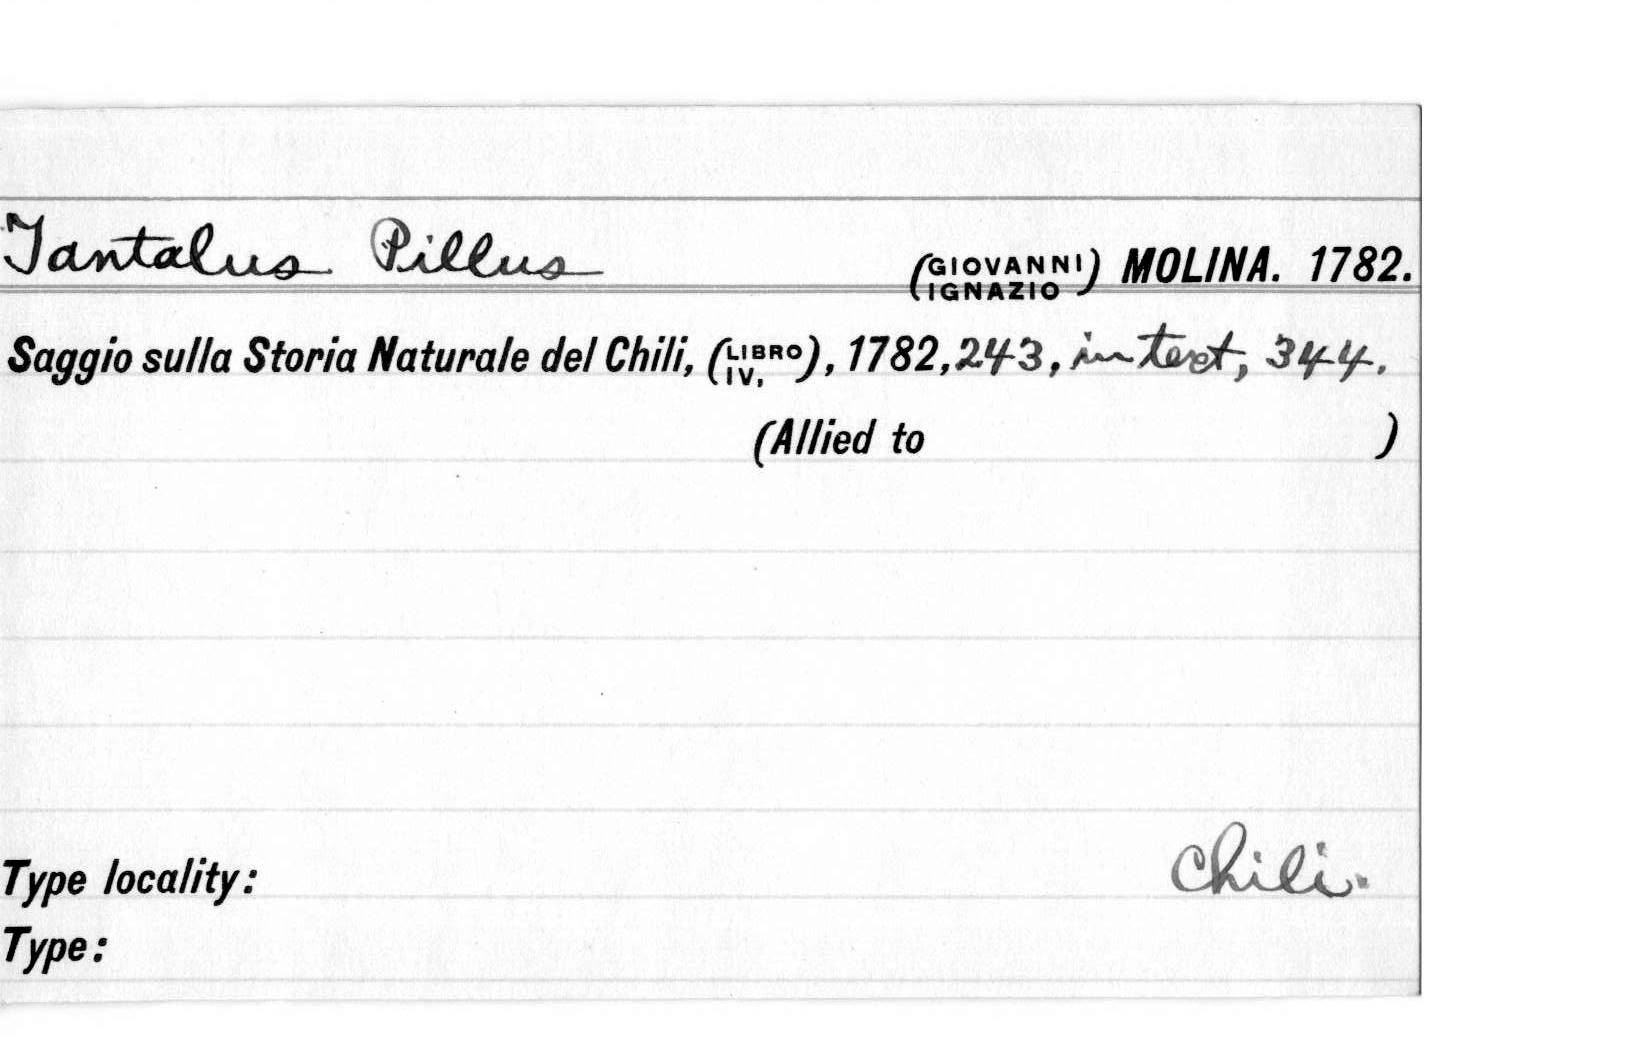 Tantalus Pillus (GIOVANNI IGNAZIO) MOLINA. 1782.
Saggio sulla Storia Naturale del Chili, (LIBRO IV,), 1782, 243, in text, 344.
(Allied to )
Type locality: Chili.
Type: